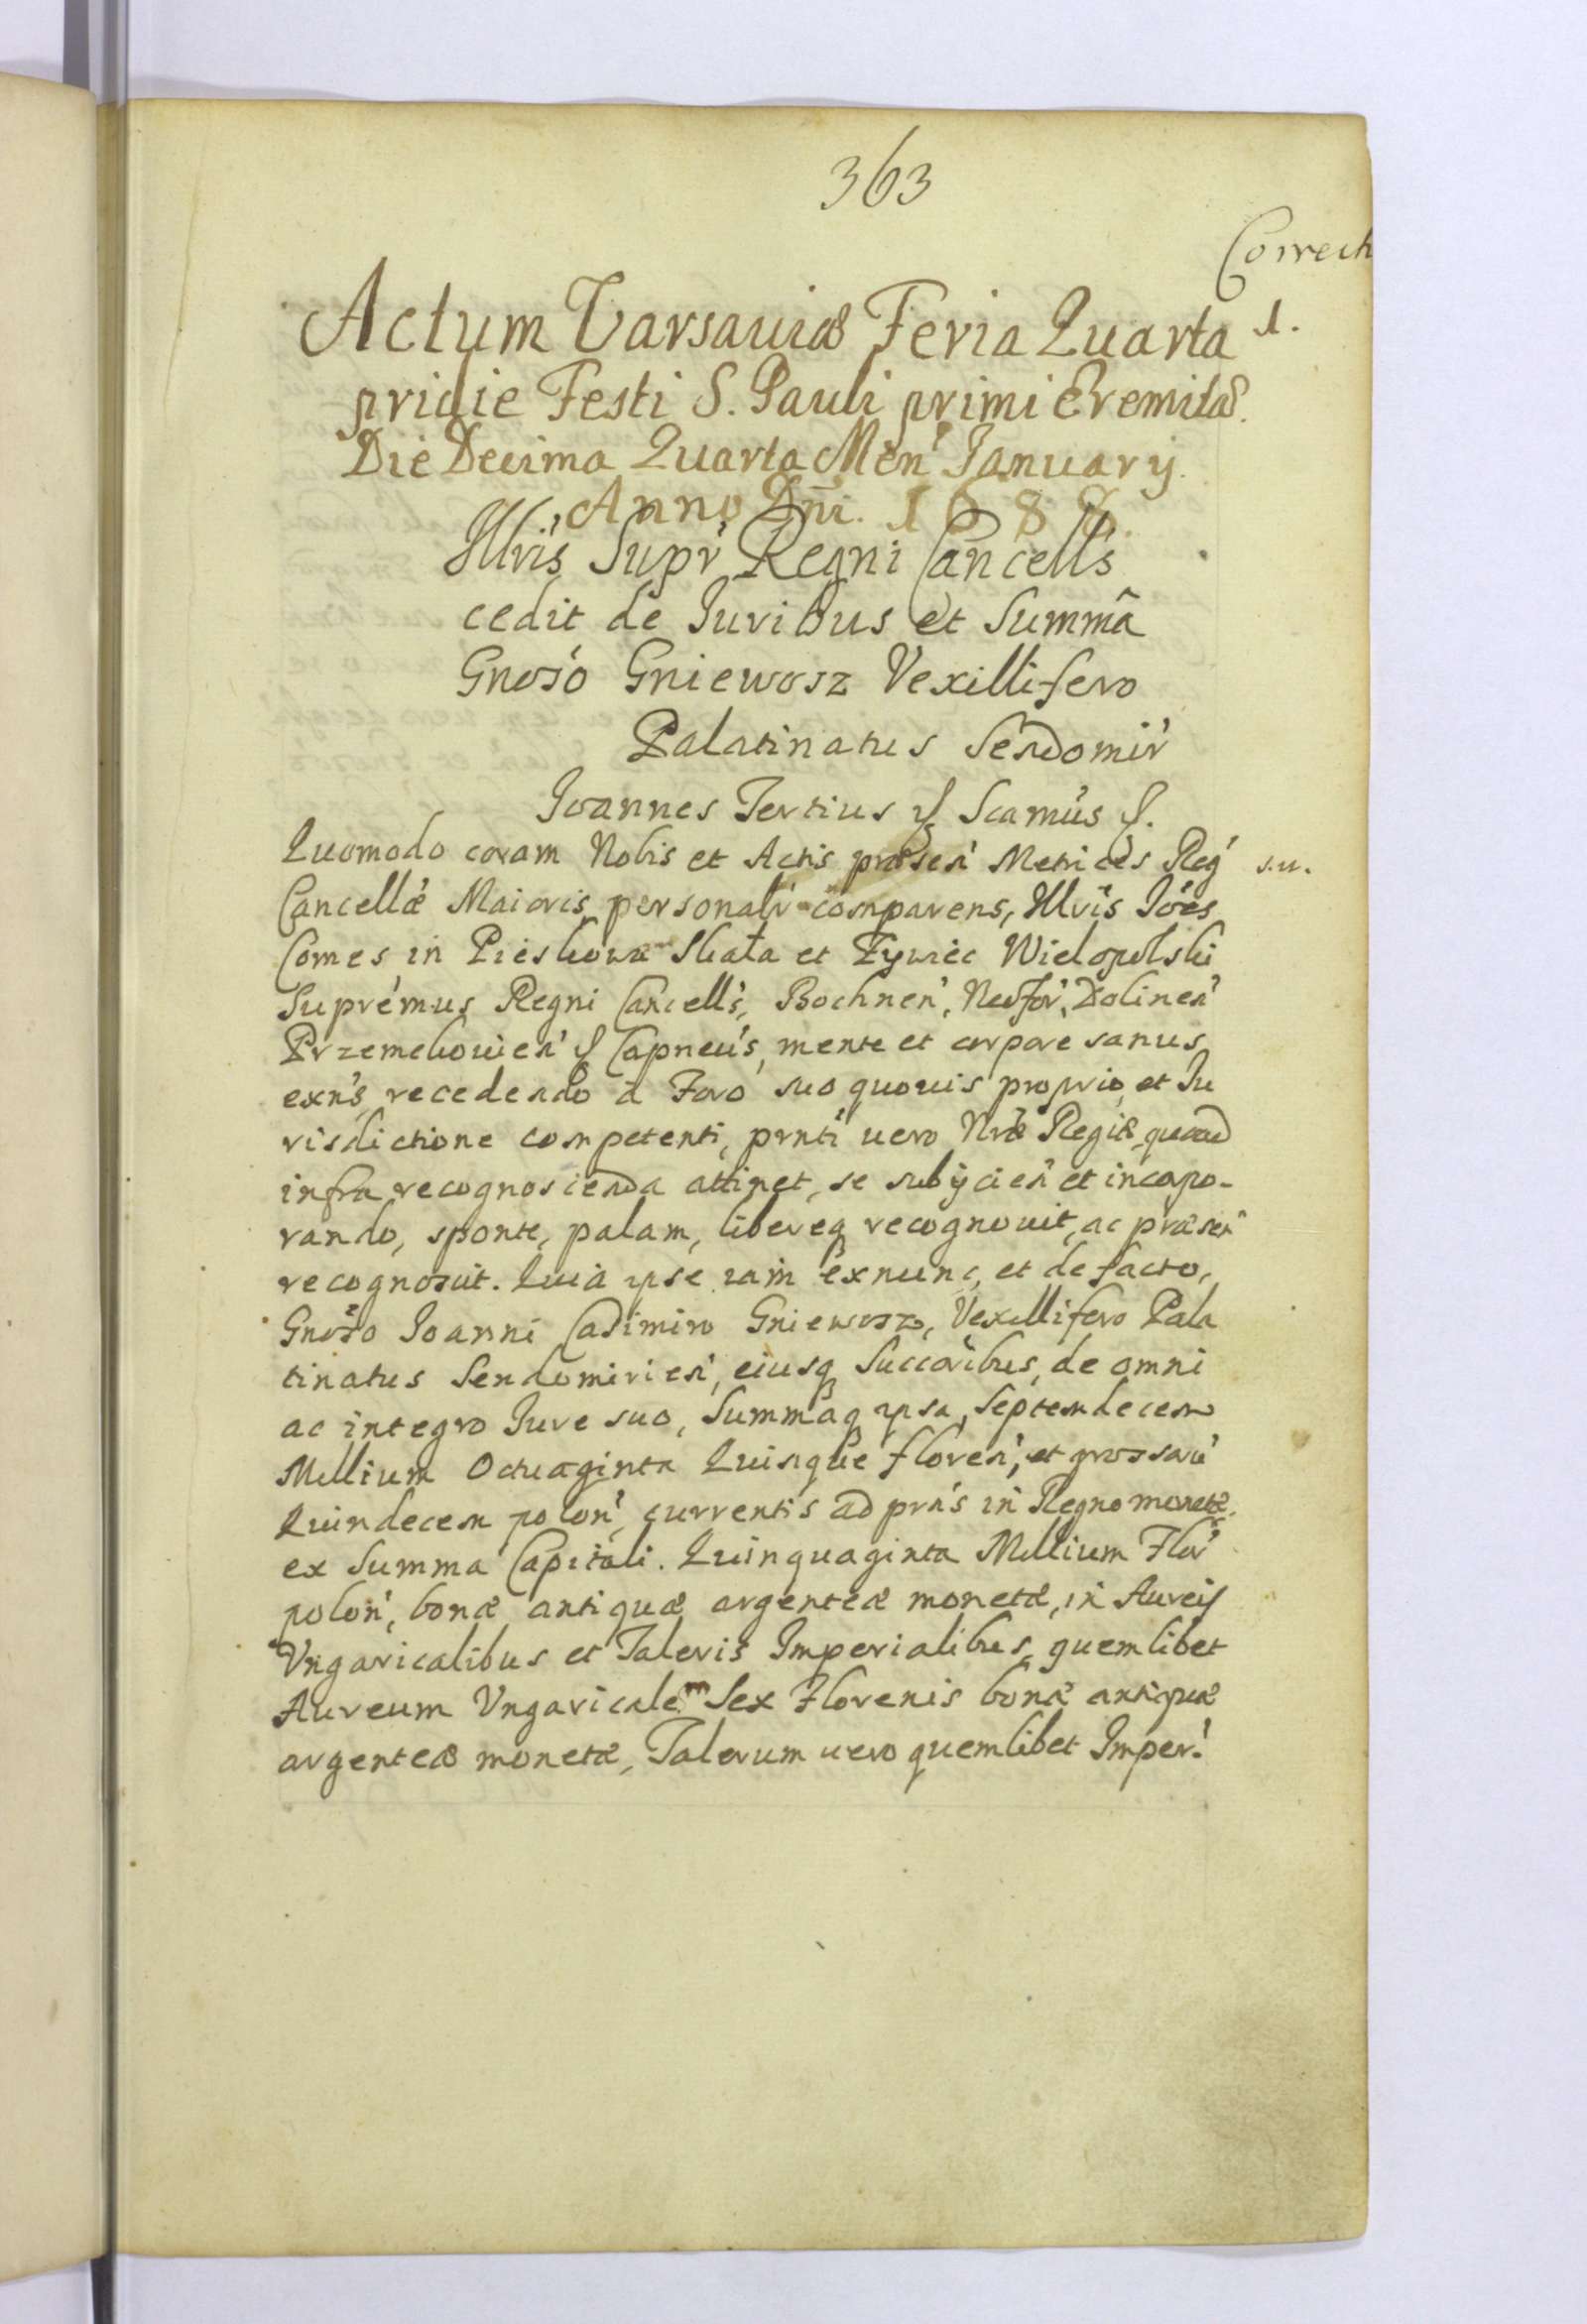 363
Correct
Actum Varsaviæ Feria Quarta 1.
pridie Festi S. Pauli primi Eremitæ.
Die Decima Quarta Men' January
Anno Dni. 1688.
Illris Supr' Regni Cancell's
cedit de Iuribus et Summa
Gnoso Gniewosz Vexillifero
Palatinatus Sendomir'
Joannes Tertius Scamus
Quomodo coram Nobis et Actis præsen' Metrices Reg' s.n.
Cancellæ Maioris personalr' comparens, Illris Joes
Comes in Pieskowa Skała et Zywiec Wielopolski
Supremus Regni Cancell's, Bochnen', Neofor', Dolinen'
Przemekouien' Capneus, mente et corpore sanus,
exn's recedendo a Foro suo quouis proprio, et Iu
risdictione competenti, prnti uero Nræ Regiæ, quoad
infra recognoscenda attinet, se subijcien' et incorpo-
rando, sponte, palam, libereq recognouit, ac præsen'
recognoscit. Quia ipse iam exnunc, et de facto,
Gnoso Joanni Casimiro Gniewosz, Vexillifero Pala
tinatus Sendomirien', eiusq Succoribus, de omni
ac integro Iure suo, Summaq ipsa, Septemdecem
Millium Octuaginta Quinque floren', et grossoru'
Quindecem polon', currentis ad præn's in Regno monetæ.
ex Summa Capitali. Quinquaginta Millium Flor'
polon', bonæ antiquæ argenteæ monetæ, in Aureis
Vngaricalibus et Taleris Imperialibus, quemlibet
Aureum Vngaricalem Sex Florenis bonæ antiquæ
argenteæ monetæ, Talerum uero quemlibet Imper'